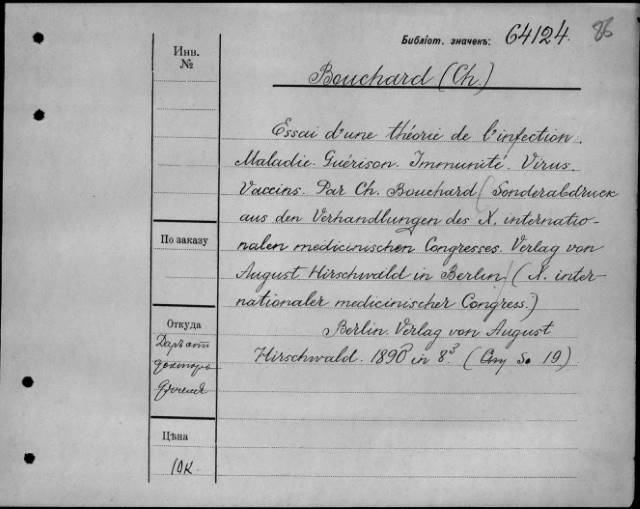 Библіот. значекъ: 64124. 86
Инв.
№
Bouchard (Ch.)
Essai d'une théorie de l'infection.
Maladie. Guérison. Immunité. Virus.
Vaccins. Par Ch. Bouchard (Sonderabdruck
aus den Verhandlungen des X. internatio-
nalen medicinischen Congresses. Verlag von
August Hirschwald in Berlin) (X. inter-
nationaler medicinischer Congress.)
Berlin. Verlag von August
Hirschwald. 1890 in 8. 19)
По заказу
Откуда
Даръ отъ
доктора
Цѣна
10к.